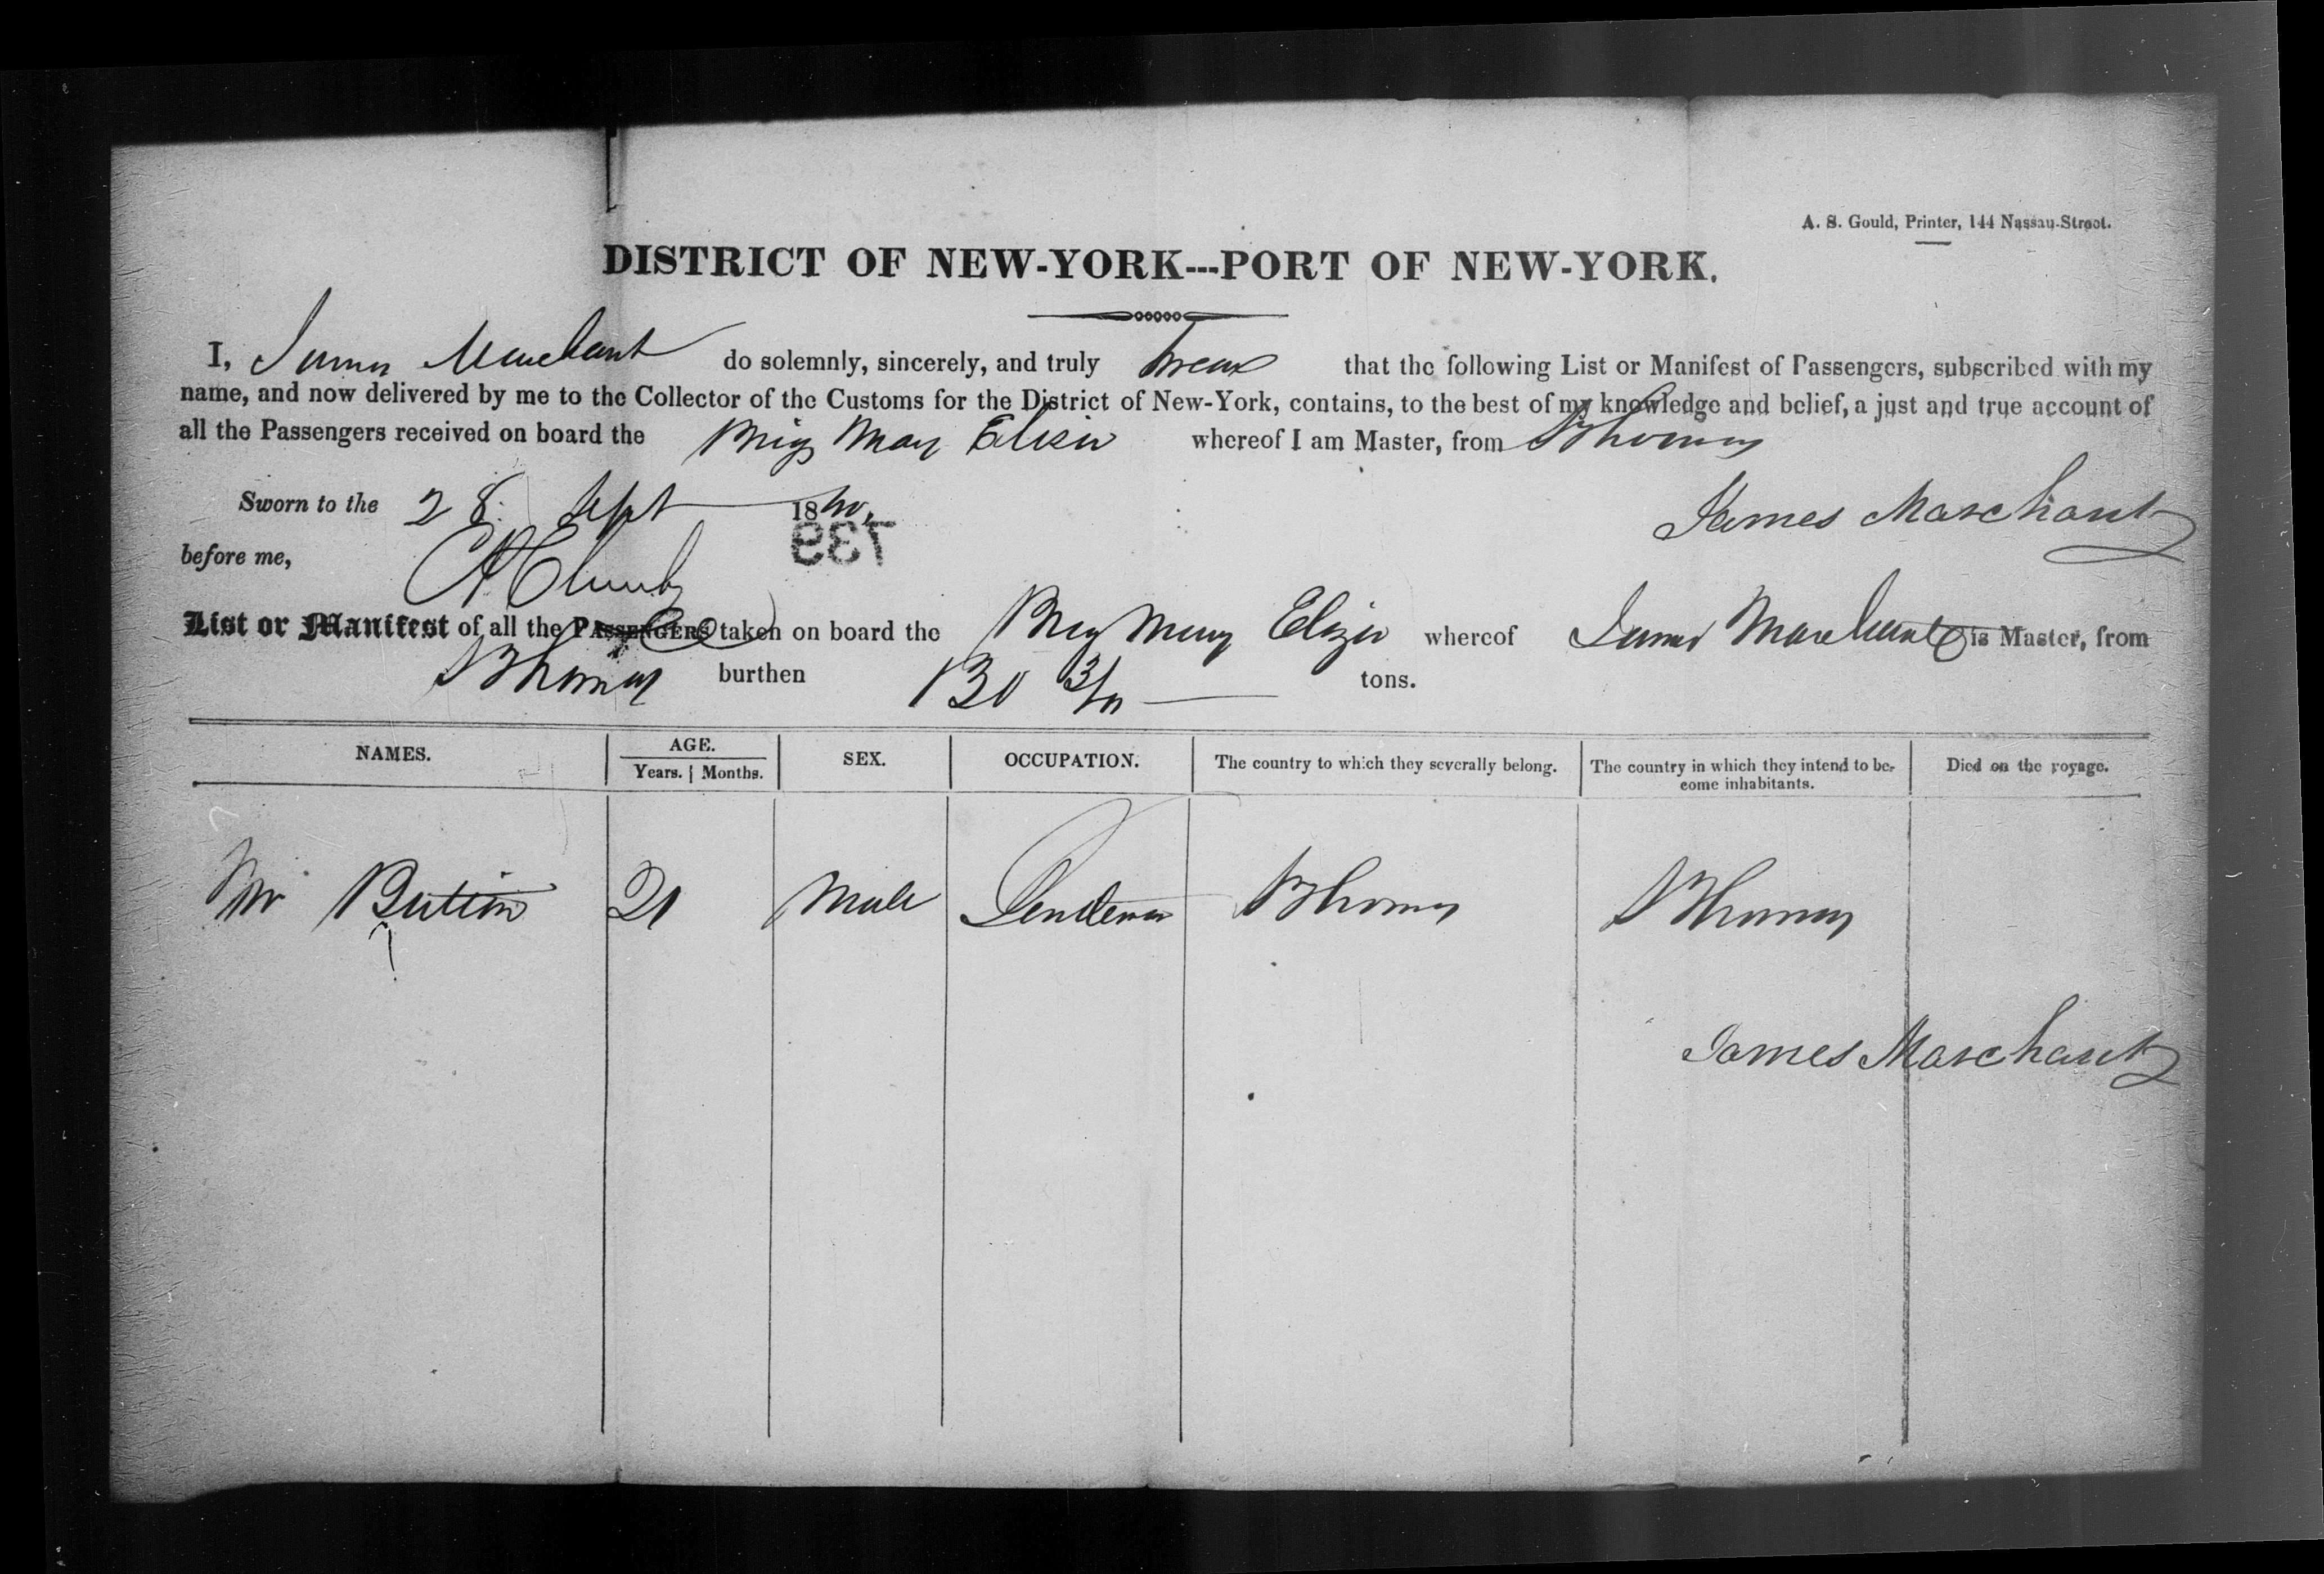 A. S. Gould, Printer, 144 Nassau-Street.
DISTRICT OF NEW-YORK---PORT OF NEW-YORK.
I, James Marchant do solemnly, sincerely, and truly Swear that the following List or Manifest of Passengers, subscribed with my
name, and now delivered by me to the Collector of the Customs for the District of New-York, contains, to the best of my knowledge and belief, a just and true account of
all the Passengers received on board the Brig Mary Eliza whereof I am Master, from St Thomas
Sworn to the 28 Sept 1840,
James Marchant
before me,
937
List or Manifest of all the PASSENGERS taken on board the Brig Mary Eliza whereof James Marchant is Master, from
St Thomas burthen 130 tons.
NAMES. AGE. SEX. OCCUPATION. The country to which they severally belong. The country in which they intend to be- Died on the voyage.
Years. Months. come inhabitants.
Mr 21 Male Gentleman St Thomas St Thomas
James Marchant